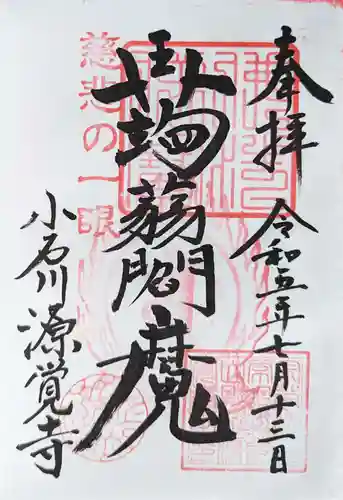 奉拝
令和五年七月十三日
蒟蒻閻魔
小石川源覚寺
慈悲の一眼